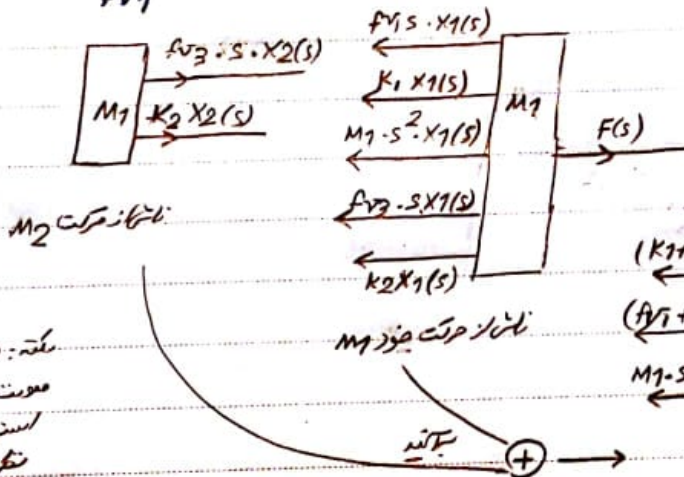 fv3 . S . X2(s)
M1
K2 X2(s)
ناشی از حرکت M2
fv1 S . X1(s)
K1 X1(s)
M1 . S² . X1(s)
fv3 . S . X1(s)
K2 X1(s)
M1
F(s)
ناشی از حرکت خود M1
(K1+
(fv1+
M1 . S
نکته:
است
برآیند
+